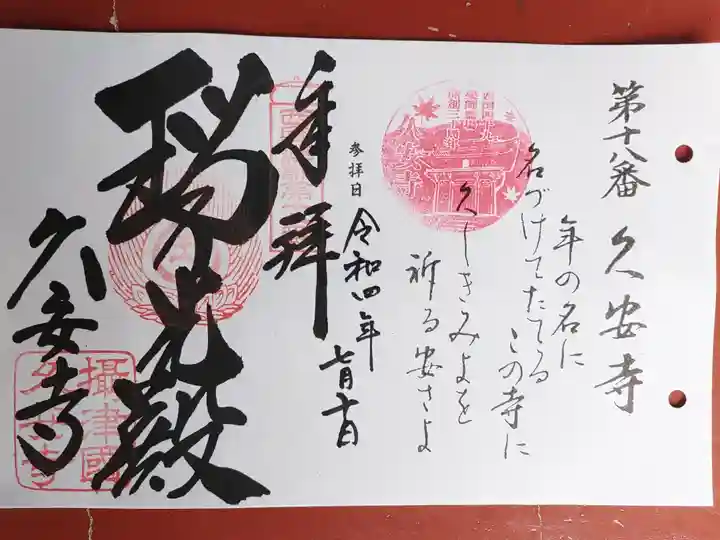 第十八番 久安寺
年の名に
名づけてたてる
この寺に
久しきみよを
祈る安さよ
久安寺
奉拝
参拝日 令和四年 七月十日
瑞光殿
久安寺
攝津國